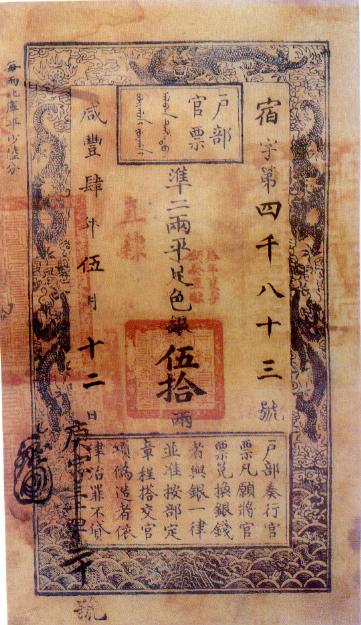 宿字第四千八十三號
户部
官票
準二兩平足色銀伍拾兩
直隸
咸豐肆年伍月十二日
每兩比庫平少陸分
戶部奏行官
票凡願將官
票兌換銀錢
者與銀一律
並准按部定
章程搭交官
項偽造者依
律治罪不貸
號